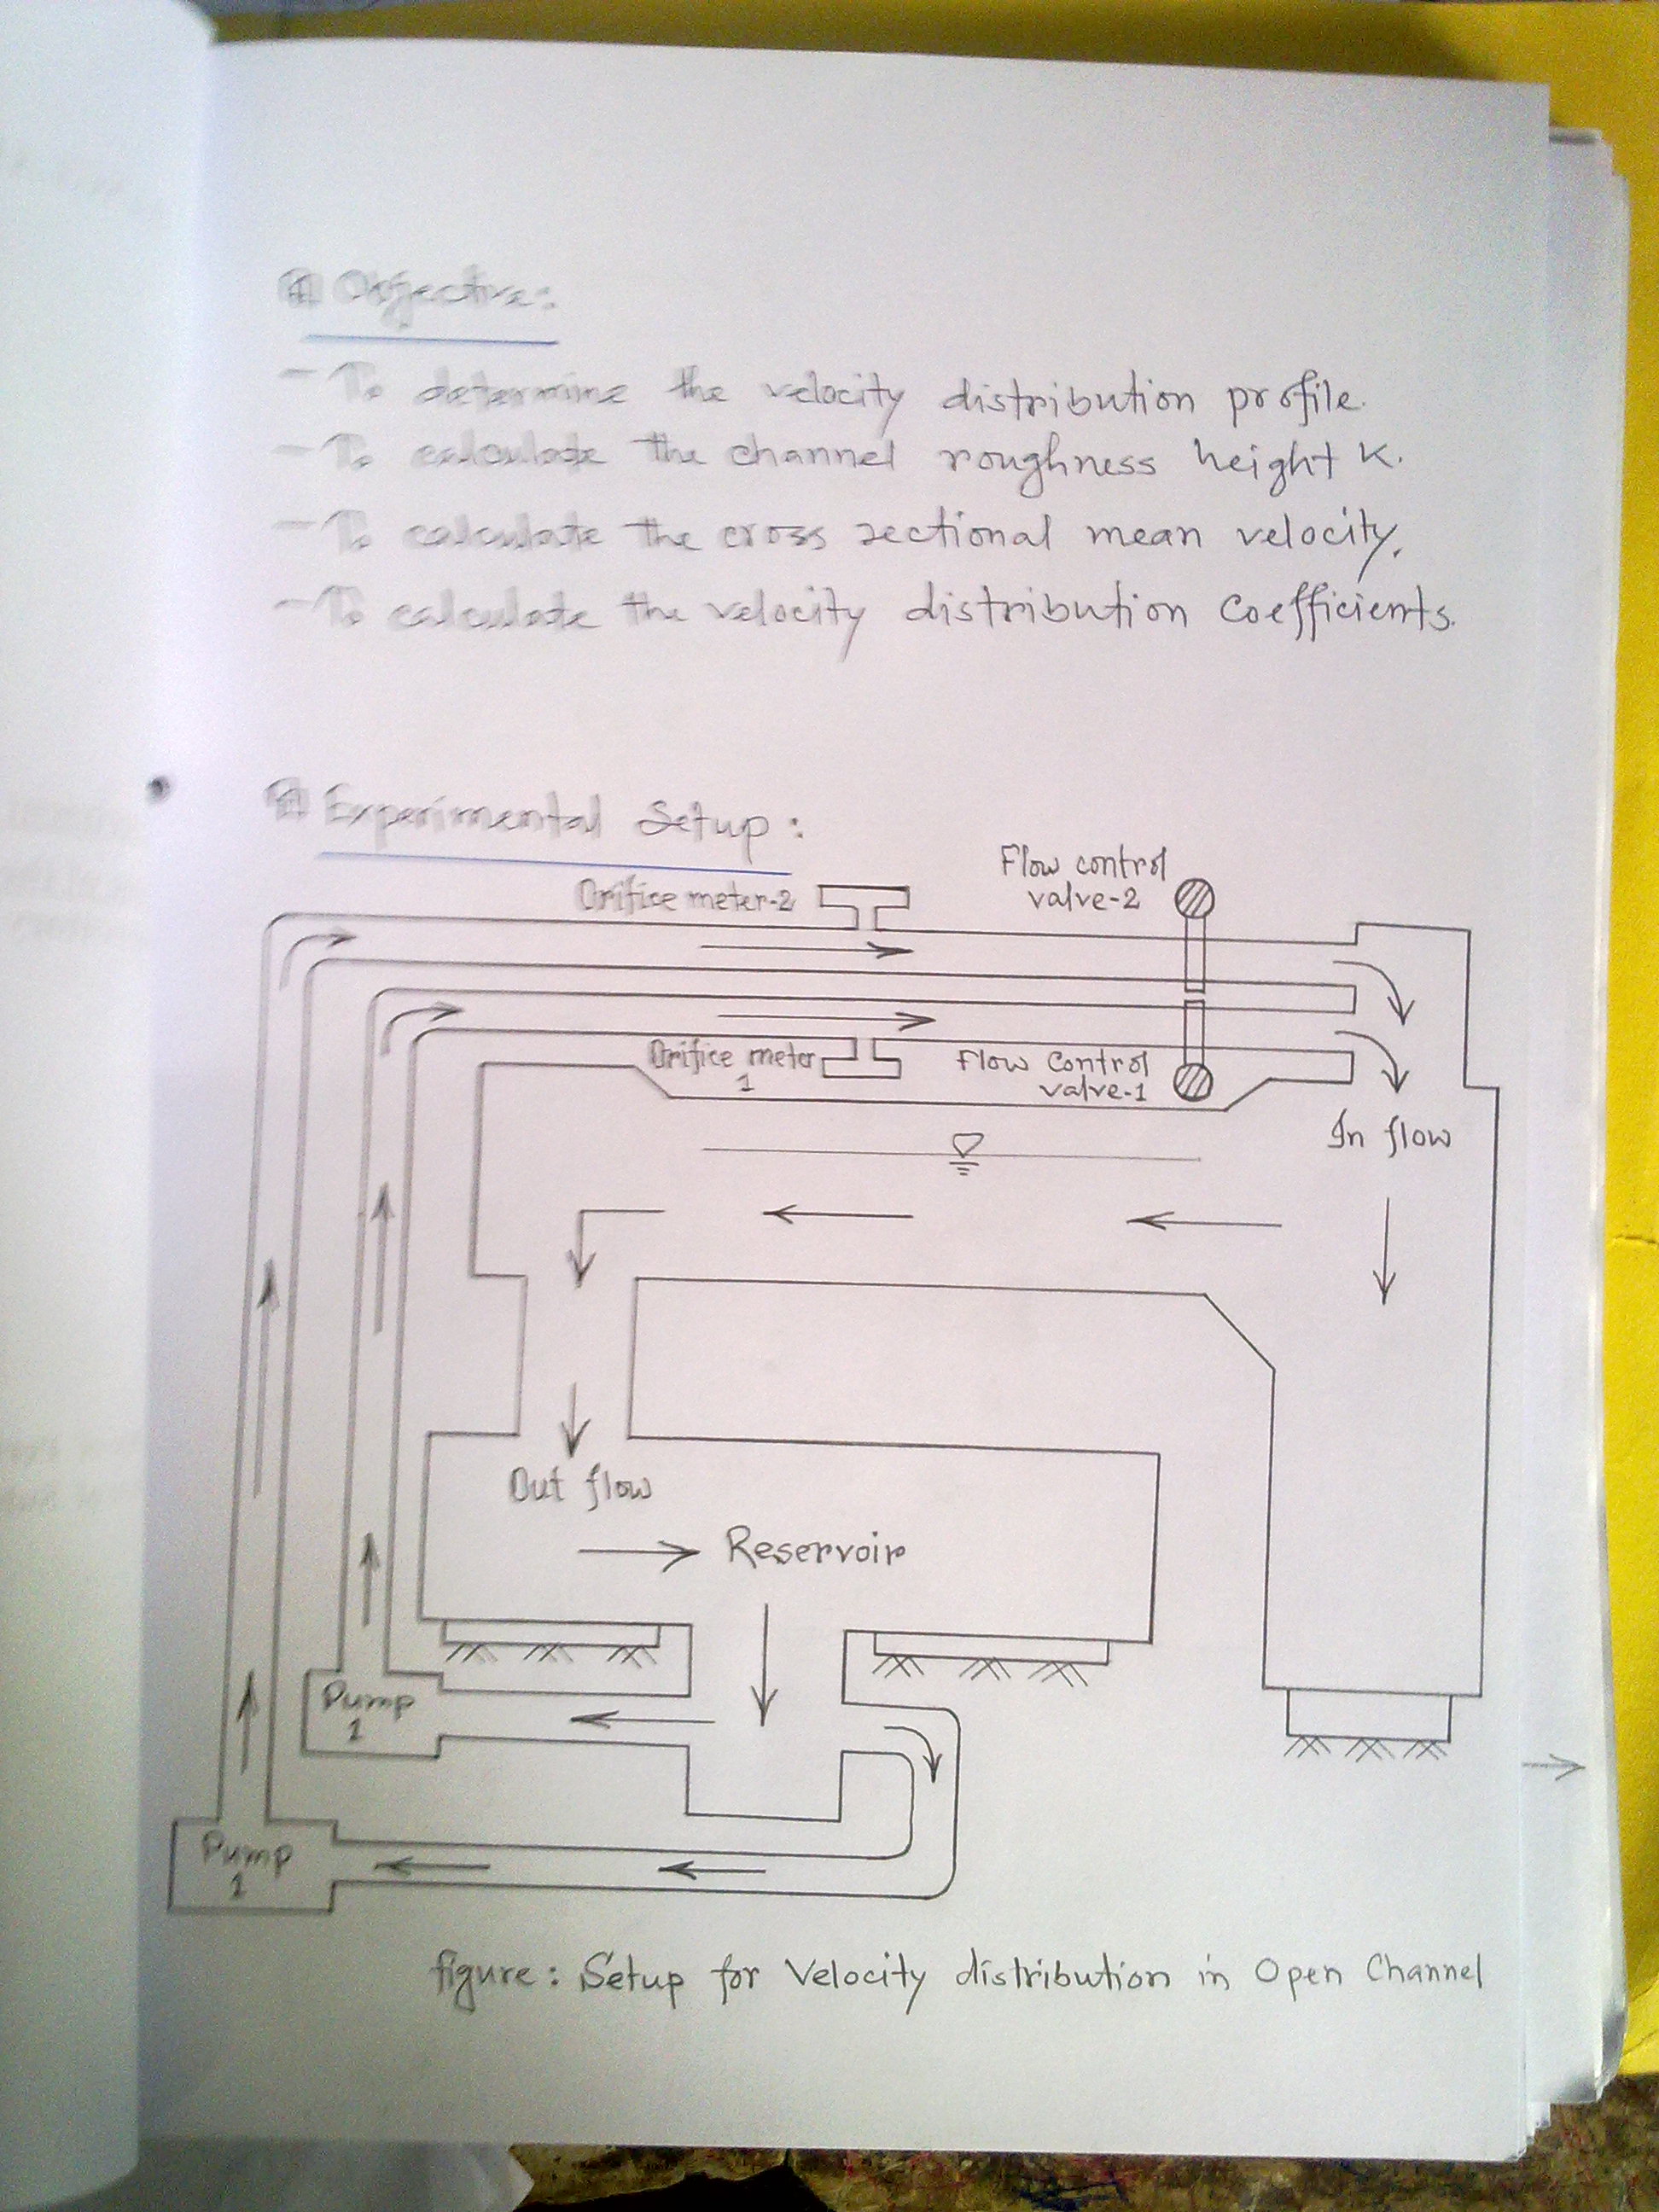 Objective:
- To determine the velocity distribution profile.
- To calculate the channel roughness height K.
- To calculate the cross sectional mean velocity.
- To calculate the velocity distribution Coefficients.
Experimental Setup:
Orifice meter-2
Flow control
valve-2
Orifice meter
1
Flow Control
valve-1
In flow
Out flow
Reservoir
Pump
1
Pump
1
figure: Setup for Velocity distribution in Open Channel